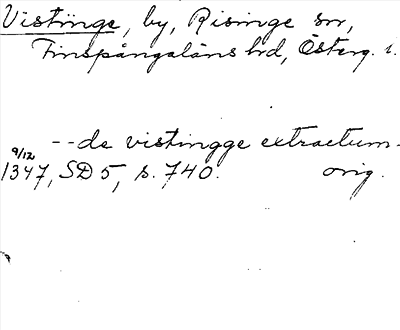 Vistinge, by, Risinge sn,
Finspångaläns hd, Österg. l.
--de vistingge extractum.
9/12
1347, SD 5, s. 740. orig.